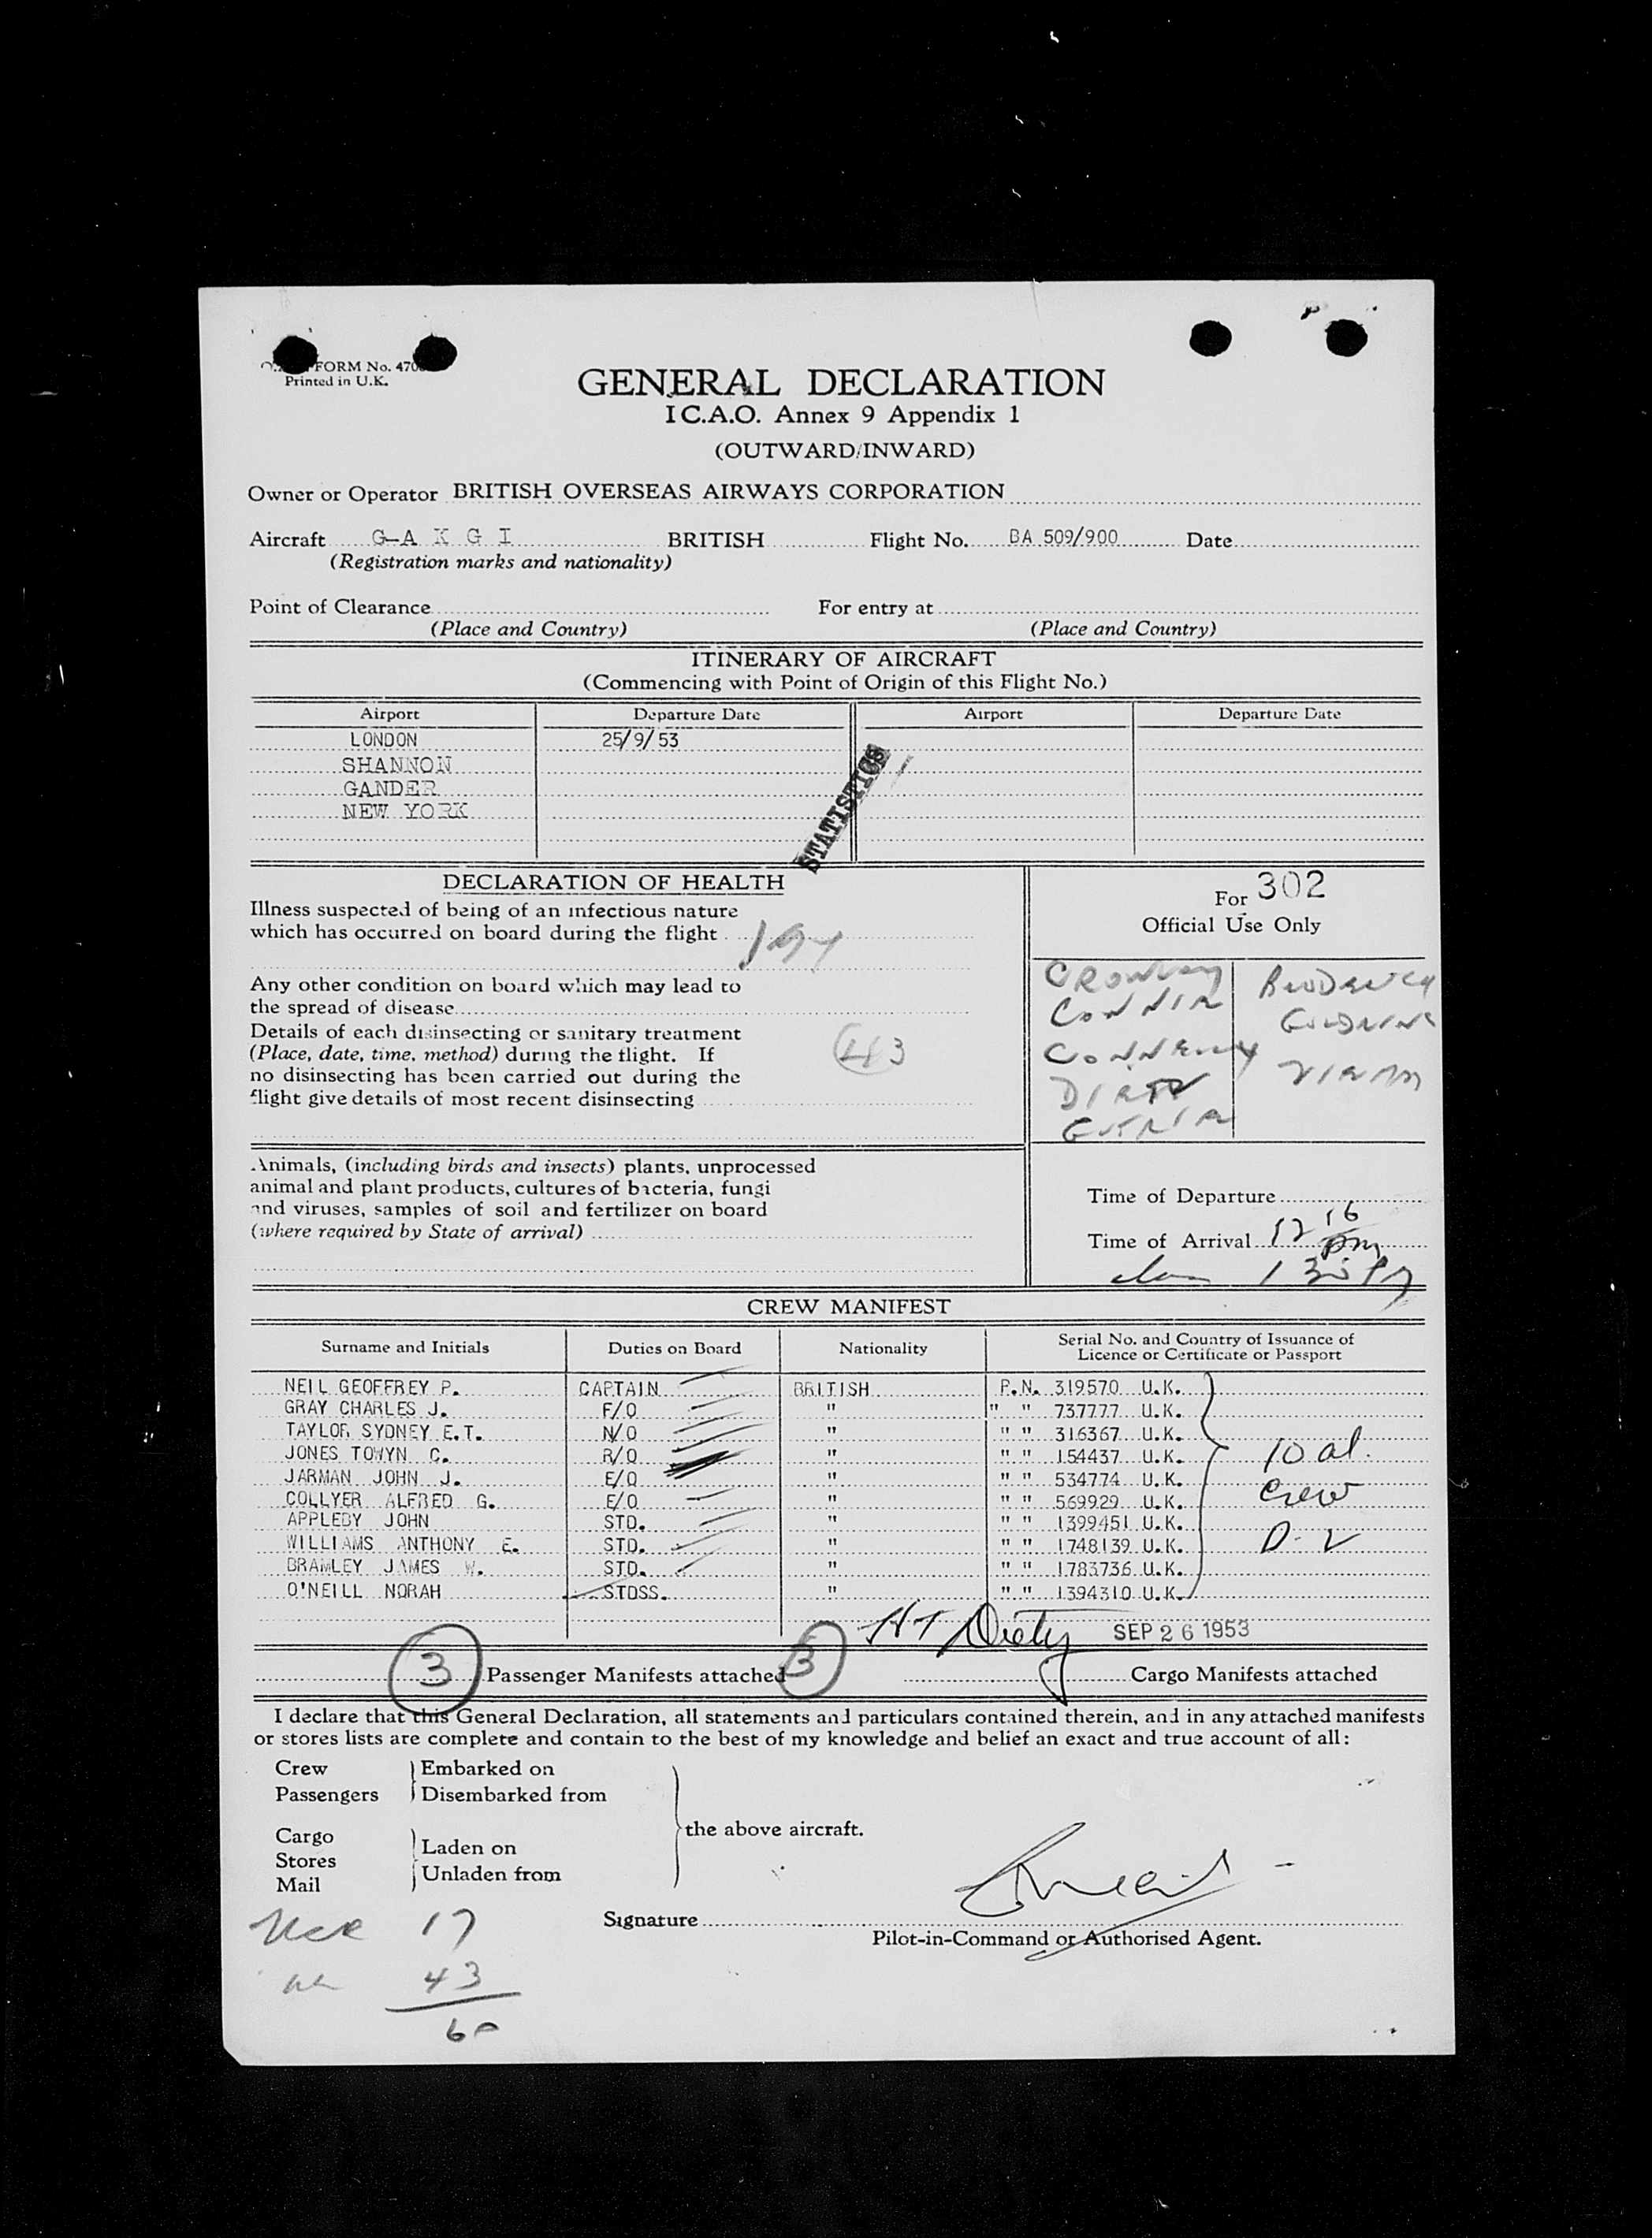 FORM No. 470
Printed in U.K.
GENERAL DECLARATION
I C.A.O. Annex 9 Appendix 1
(OUTWARD/INWARD)
Owner or Operator BRITISH OVERSEAS AIRWAYS CORPORATION
Aircraft G-A K G I BRITISH Flight No. BA 509/900 Date
(Registration marks and nationality)
Point of Clearance For entry at
(Place and Country) (Place and Country)
ITINERARY OF AIRCRAFT
(Commencing with Point of Origin of this Flight No.)
Airport Departure Date Airport Departure Date
LONDON 25/9/53
SHANNON
GANDER
NEW YORK
STATISTICS
DECLARATION OF HEALTH
Illness suspected of being of an infectious nature
which has occurred on board during the flight
Any other condition on board which may lead to
the spread of disease
Details of each disinsecting or sanitary treatment
(Place, date, time, method) during the flight. If
no disinsecting has been carried out during the
flight give details of most recent disinsecting
43
For 302
Official Use Only
Animals, (including birds and insects) plants, unprocessed
animal and plant products, cultures of bacteria, fungi
and viruses, samples of soil and fertilizer on board
(where required by State of arrival)
Time of Departure
Time of Arrival 12 16 pm
CREW MANIFEST
Surname and Initials Duties on Board Nationality Serial No. and Country of Issuance of
Licence or Certificate or Passport
NEIL GEOFFREY P. CAPTAIN BRITISH P.N. 319570 U.K.
GRAY CHARLES J. F/O " " " 737777 U.K.
TAYLOR SYDNEY E.T. N/O " " " 316367 U.K.
JONES TOWYN C. R/O " " " 154437 U.K.
JARMAN JOHN J. E/O " " " 534774 U.K.
COLLYER ALFRED G. E/O " " " 569929 U.K.
APPLEBY JOHN STD. " " " 1399451 U.K.
WILLIAMS ANTHONY E. STD. " " " 1748139 U.K.
BRAMLEY JAMES W. STD. " " " 1783736 U.K.
O'NEILL NORAH STDSS. " " " 1394310 U.K.
10 al.
Crew
D-2
SEP 26 1953
3 Passenger Manifests attached 3 Cargo Manifests attached
I declare that this General Declaration, all statements and particulars contained therein, and in any attached manifests
or stores lists are complete and contain to the best of my knowledge and belief an exact and true account of all:
Crew Embarked on
Passengers Disembarked from
the above aircraft.
Cargo
Stores Laden on
Mail Unladen from
Signature
Pilot-in-Command or Authorised Agent.
17
43
60